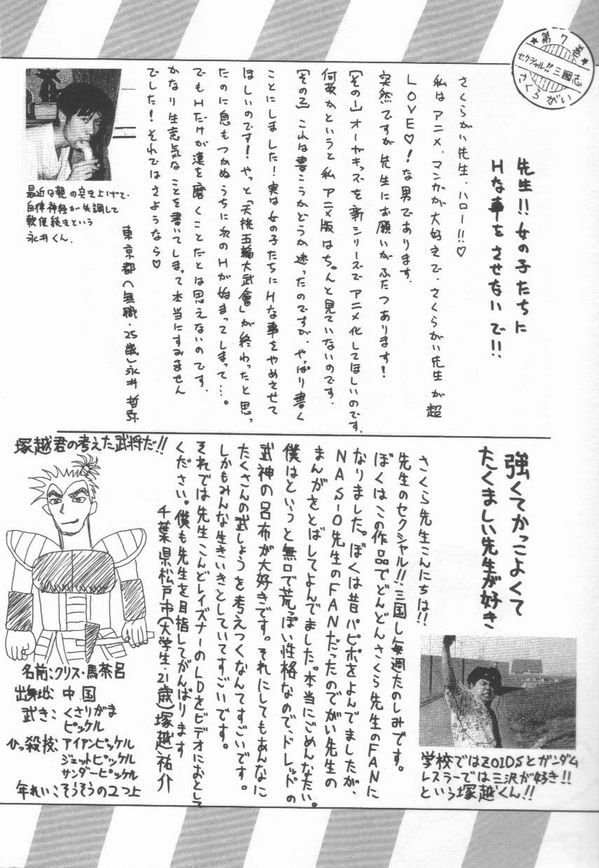 第7巻
セクシャル!!三國志
さくらがい
先生!!女の子たちに
Hな事をさせないで!!
さくらがい先生、ハロー!!♡
私はアニメ、マンガが大好きで、さくらがい先生が超
LOVE♡!な男であります。
突然ですが先生にお願いがふたつあります!
【その1】オーヤキッズを新シリーズでアニメ化してほしいのです。
何故かというと私アニメ版はちゃんと見ていないのです。
【その2】これは書こうかどうか迷ったのですが、やっぱり書く
ことにしました!実は女の子たちにHな事をやめさせて
ほしいのです!やっと「天桃五輪大武會」が終わったと思っ
たのに息もつかぬうちに次のHが始まってしまって…。
でもHだけが道を磨くことだとは思えないのです。
かなり生意気なことを書いてしまって本当にすみません
でした!それではさようなら♡
東京都(無職・25歳)永井哲弥
最近日観の突き上げで、
自律神経が失調して
軟便続きという
永井くん。
強くてかっこよくて
たくましい先生が好き
さくら先生こんにちは!!
先生のセクシャル!!三国し毎週たのしみです。
ぼくはこの作品でどんどんさくら先生のFANに
なりました。ぼくは昔パピポをよんでましたが、
NAS-O先生のFANだったのでがい先生の
まんがをとばしてよんでました。本当にごめんなたい。
僕はというと無口で荒っぽい性格なので、ドレッドの
武神の呂布が大好きです。それにしてもあんなに
たくさんの武しょうを考えつくなんてすごいです。
しかもみんな生きいきとしていてすごいです。
それでは先生こんどレイズナーのLDをビデオにおとして
ください。僕も先生を目指してがんばります
千葉県松戸市(大学生・21歳)塚越祐介
学校ではZOIDSとガンダム
レスラーでは三沢が好き!!
という塚越くん!!
塚越君の考えた武将だ!!
名前:クリス・馬茶呂
出身地:中国
武き:くさりがま
ピッケル
ひっ殺技:アイアンピッケル
ジェットピッケル
サンダーピッケル
年れい:そうそうの2つ上